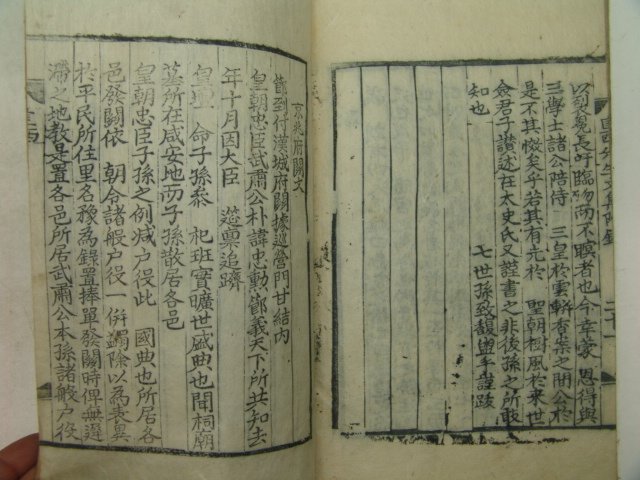 以烈魂長吁臨歿而不瞑者也今幸蒙 恩得與
三學士諸公陪侍 三皇於雲軿香案之間公於
是不其懷矣乎若其有光於 聖朝樹風於來世
僉君子讚述在太史氏又謹書之非後孫之所敢
知也
七世孫致馥盥手謹跋
京兆府關文
節到付漢城府關據巡營門甘結內
皇朝忠臣武肅公朴諱忠勳節義天下所共知去
年十月因大臣 筵稟追躋
皇壇 命子孫參 祀班實曠世盛典也聞祠廟
墓所在咸安地而子孫散居各邑
皇朝忠臣子孫之例減户役此 國典也所居各
邑發關依 朝令諸般户役一併蠲除以為表異
於平民所住里名豫為錄置捧單發關時俾無遲
滯之地敎是置各邑所居武肅公本孫諸般户役